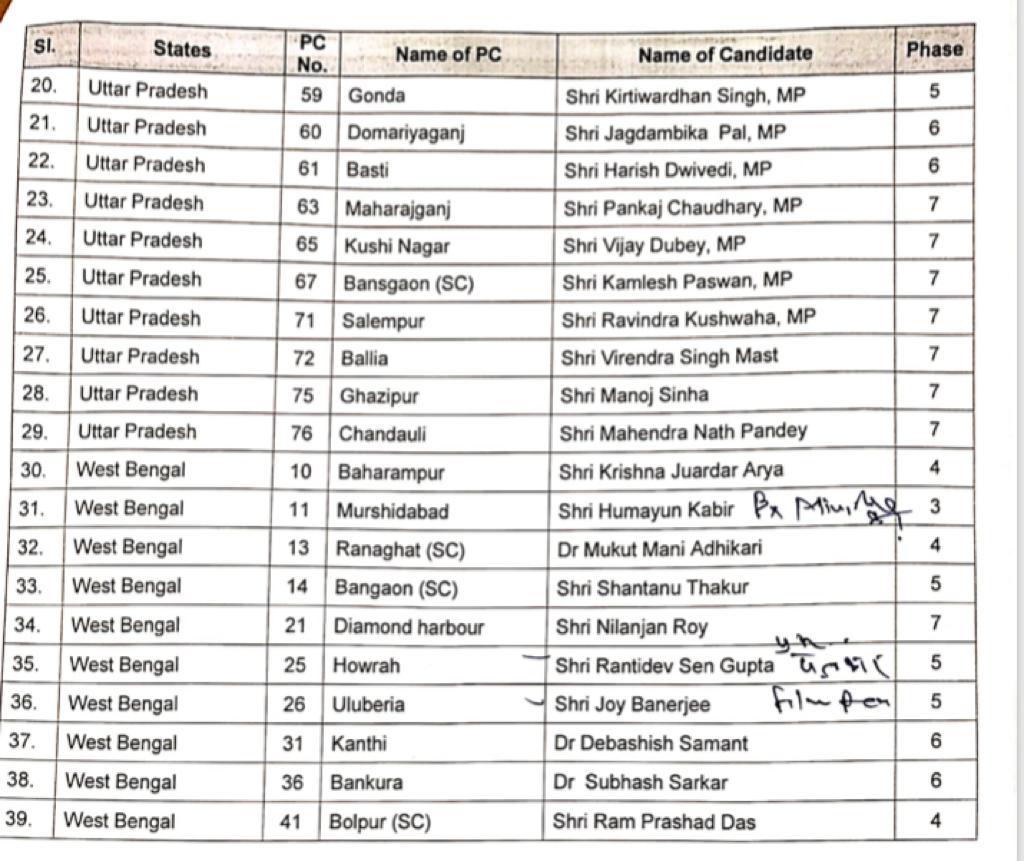 Sl. States PC No. Name of PC Name of Candidate Phase
20. Uttar Pradesh 59 Gonda Shri Kirtiwardhan Singh, MP 5
21. Uttar Pradesh 60 Domariyaganj Shri Jagdambika Pal, MP 6
22. Uttar Pradesh 61 Basti Shri Harish Dwivedi, MP 6
23. Uttar Pradesh 63 Maharajganj Shri Pankaj Chaudhary, MP 7
24. Uttar Pradesh 65 Kushi Nagar Shri Vijay Dubey, MP 7
25. Uttar Pradesh 67 Bansgaon (SC) Shri Kamlesh Paswan, MP 7
26. Uttar Pradesh 71 Salempur Shri Ravindra Kushwaha, MP 7
27. Uttar Pradesh 72 Ballia Shri Virendra Singh Mast 7
28. Uttar Pradesh 75 Ghazipur Shri Manoj Sinha 7
29. Uttar Pradesh 76 Chandauli Shri Mahendra Nath Pandey 7
30. West Bengal 10 Baharampur Shri Krishna Juardar Arya 4
31. West Bengal 11 Murshidabad Shri Humayun Kabir 3
32. West Bengal 13 Ranaghat (SC) Dr Mukut Mani Adhikari 4
33. West Bengal 14 Bangaon (SC) Shri Shantanu Thakur 5
34. West Bengal 21 Diamond harbour Shri Nilanjan Roy 7
35. West Bengal 25 Howrah Shri Rantidev Sen Gupta 5
36. West Bengal 26 Uluberia Shri Joy Banerjee Film 5
37. West Bengal 31 Kanthi Dr Debashish Samant 6
38. West Bengal 36 Bankura Dr Subhash Sarkar 6
39. West Bengal 41 Bolpur (SC) Shri Ram Prashad Das 4